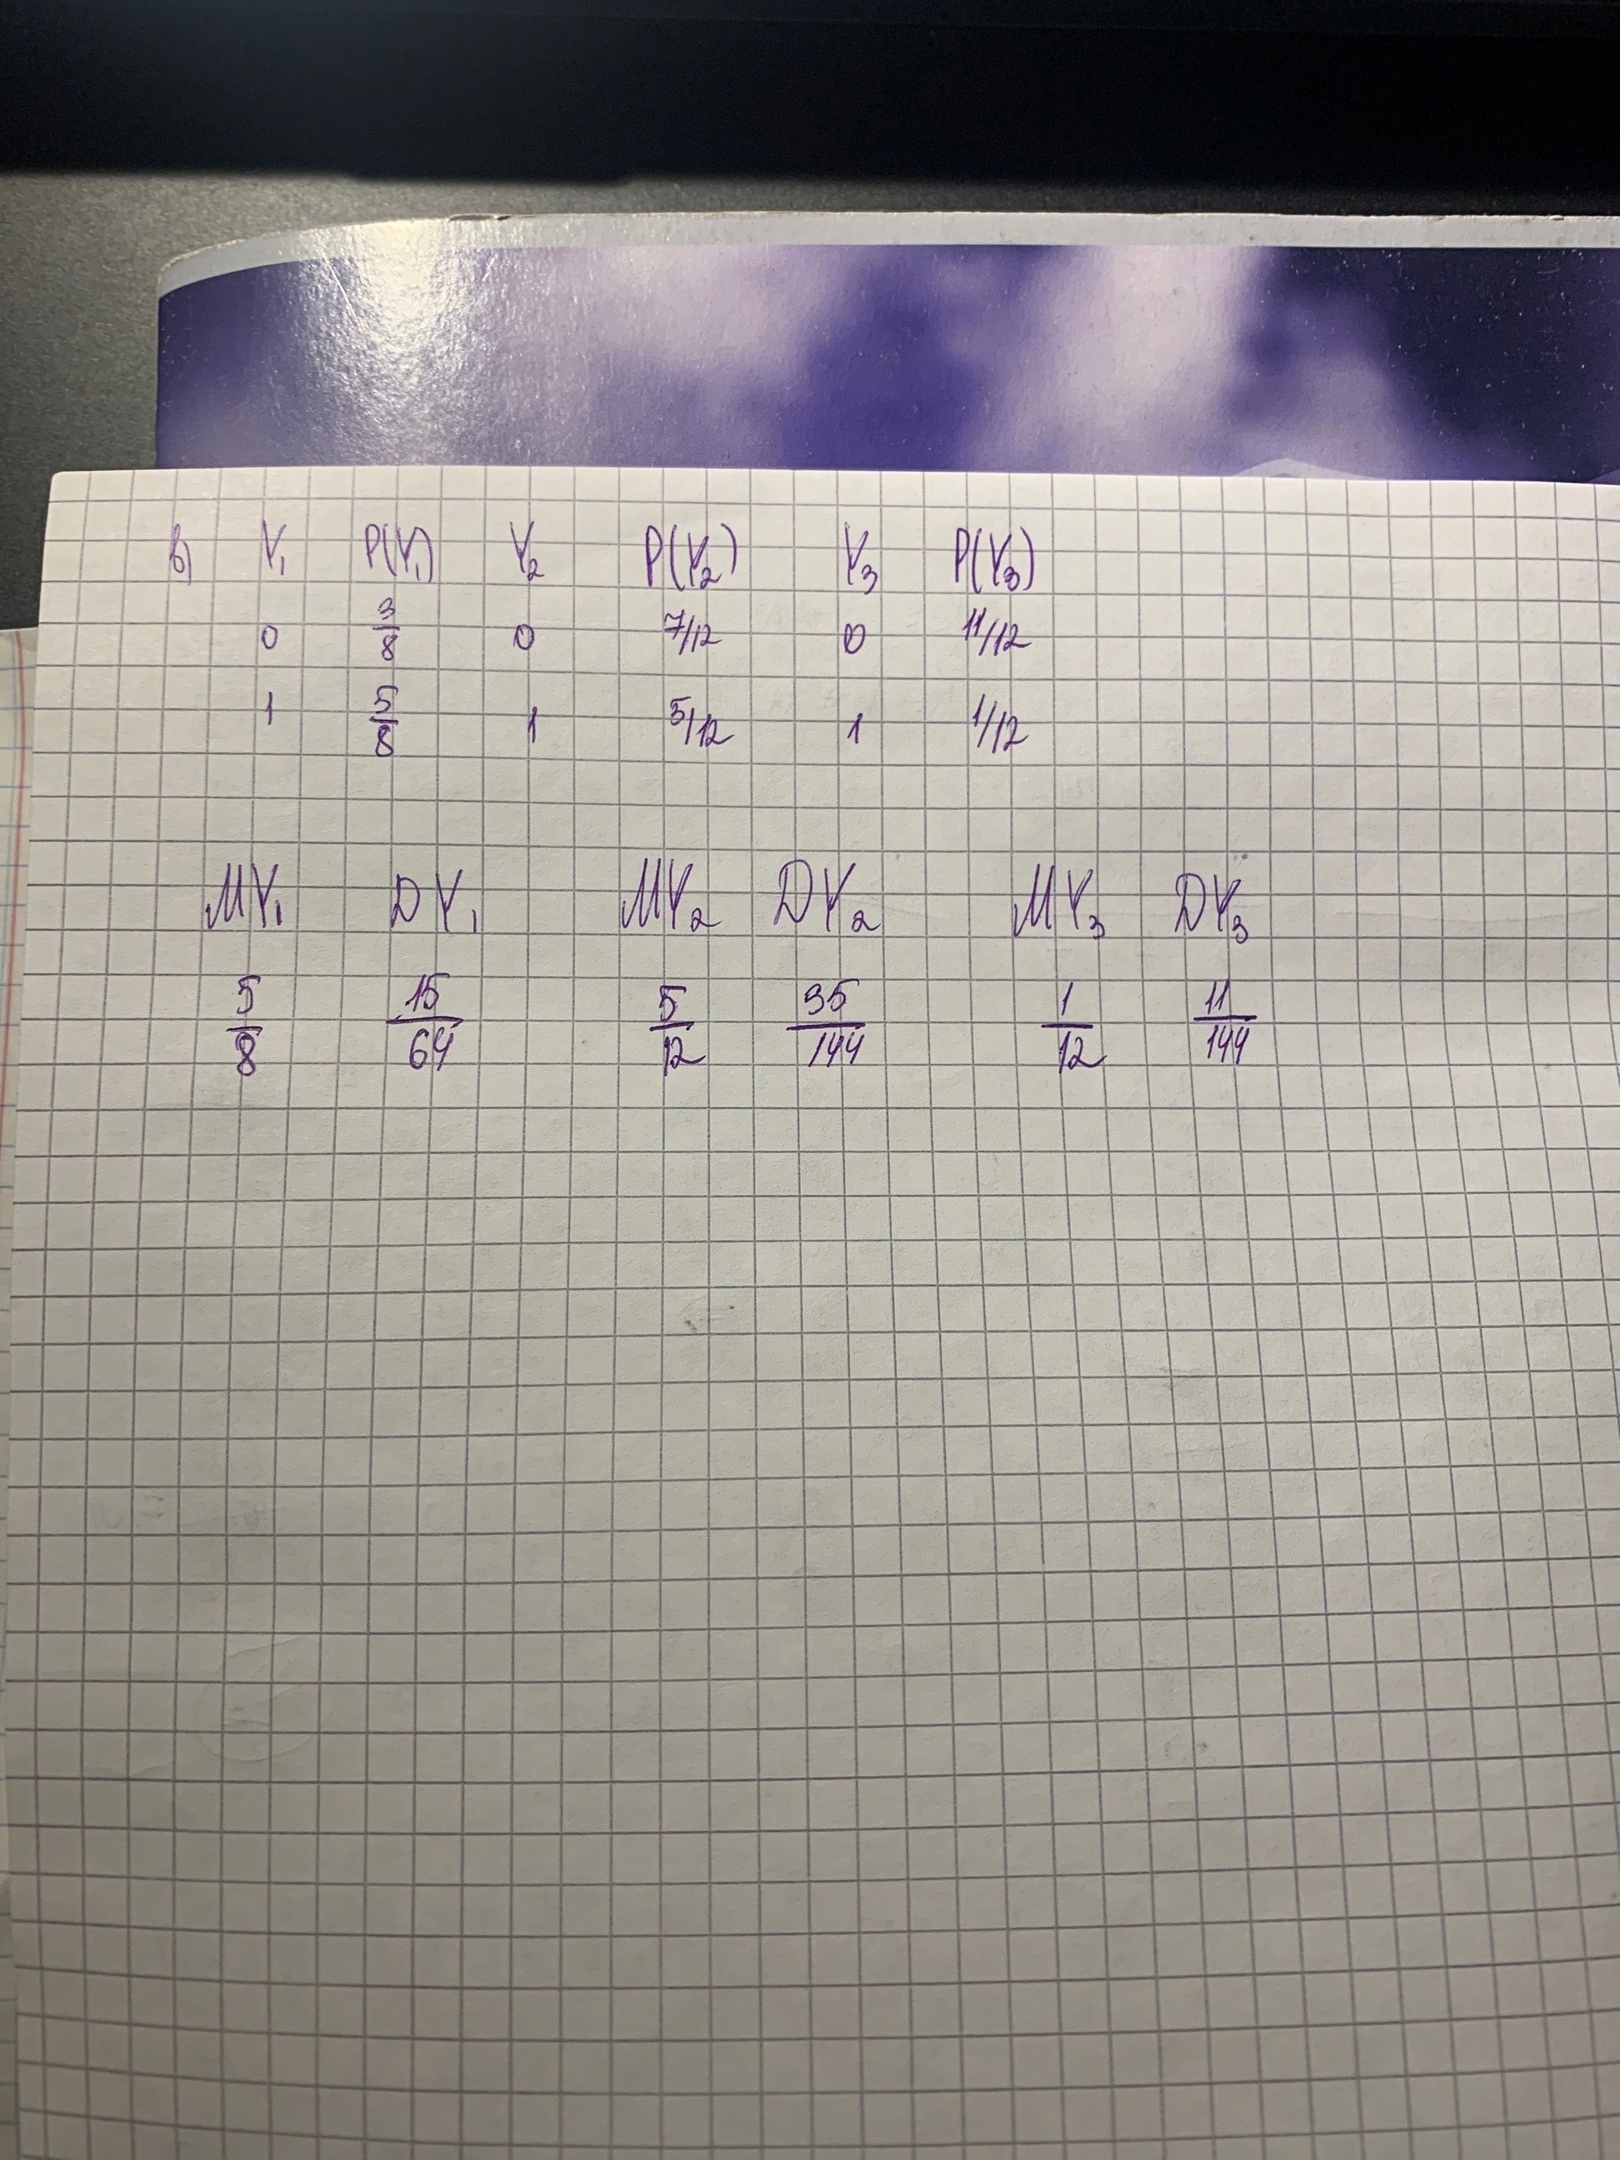 в) Y₁ P(Y₁) Y₂ P(Y₂) Y₃ P(Y₃)
0 3/8 0 7/12 0 11/12
1 5/8 1 5/12 1 1/12
MY₁ DY₁ MY₂ DY₂ MY₃ DY₃
5/8 15/64 5/12 35/144 1/12 11/144